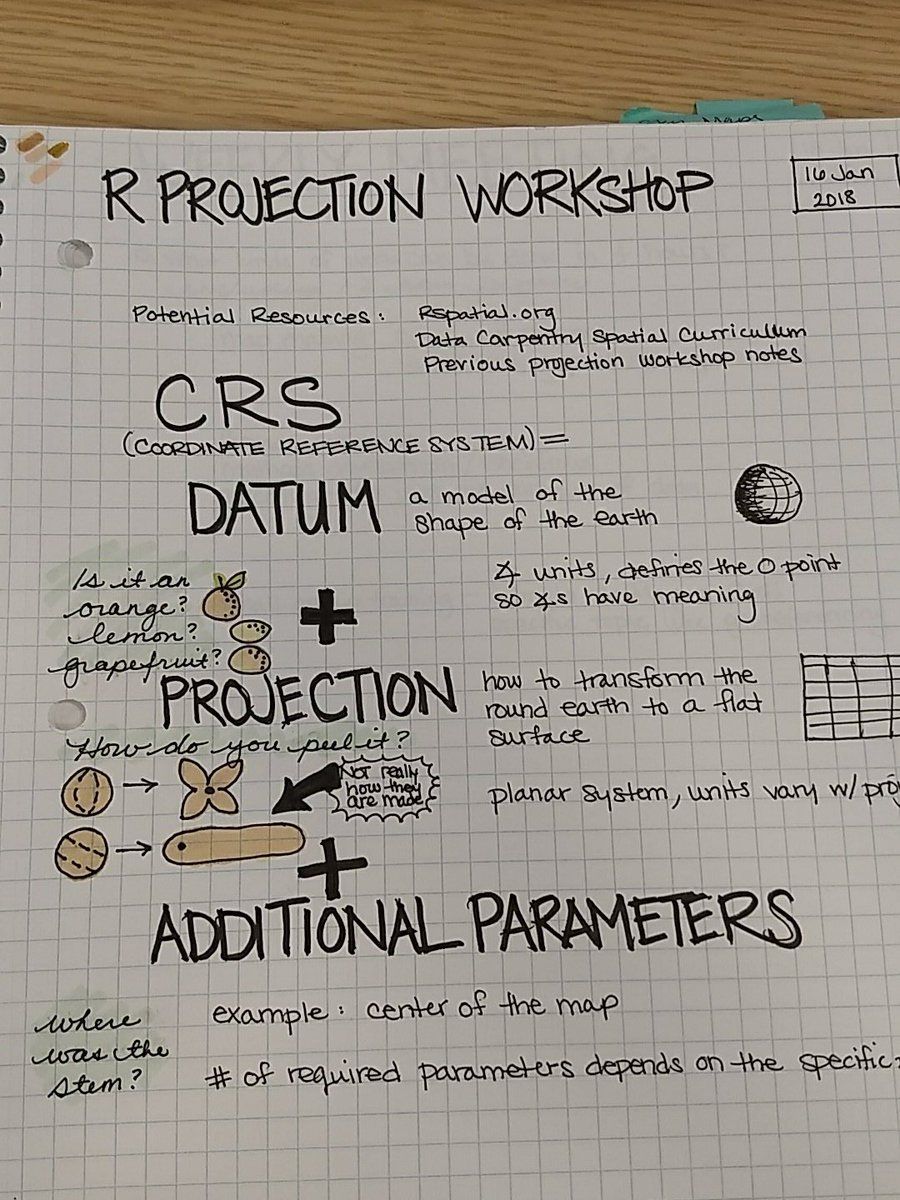 R PROJECTION WORKSHOP
16 Jan
2018
Potential Resources: Rspatial.org
Data Carpentry Spatial Curriculum
Previous projection workshop notes
CRS
(COORDINATE REFERENCE SYSTEM) =
DATUM
a model of the
shape of the earth
Is it an
orange?
lemon?
grapefruit?
+
∡ units, defines the 0 point
so ∡s have meaning
PROJECTION
how to transform the
round earth to a flat
surface
How do you peel it?
Not really
how they
are made
planar system, units vary w/
+
ADDITIONAL PARAMETERS
where
was the
stem?
example: center of the map
# of required parameters depends on the specific